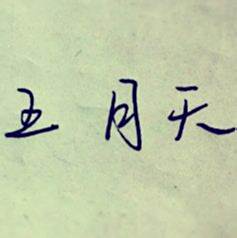 五月天